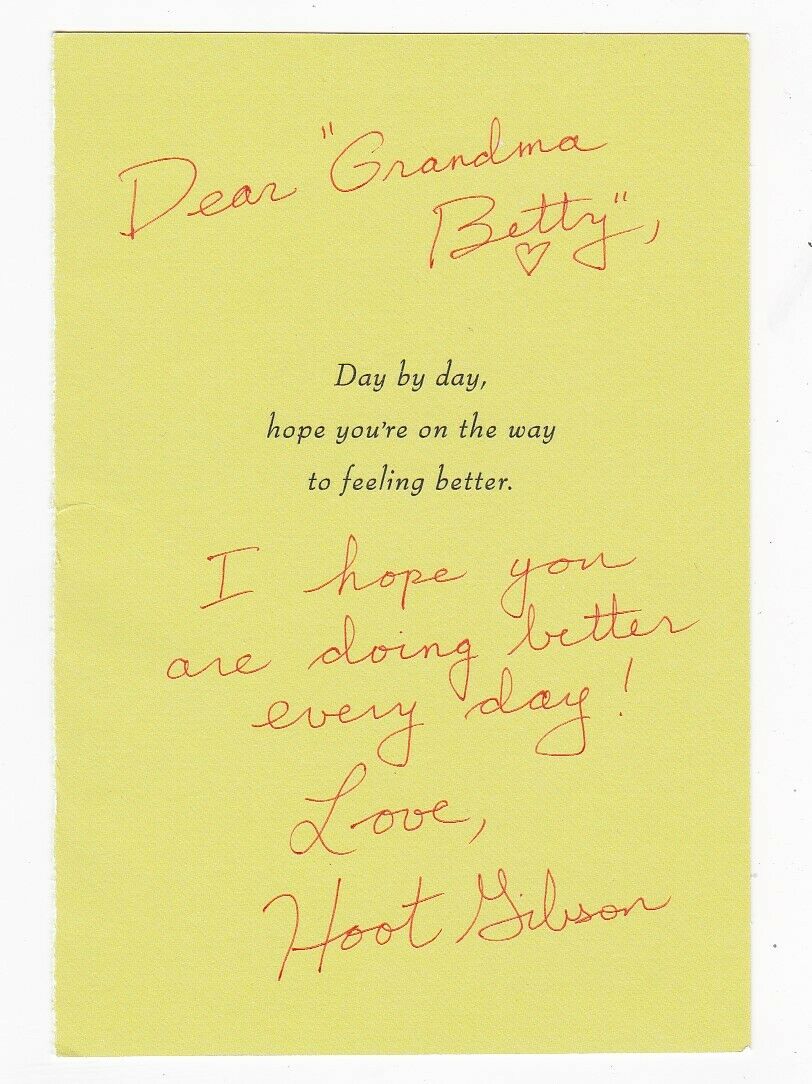 Dear "Grandma
Betty",
Day by day,
hope you're on the way
to feeling better.
I hope you
are doing better
every day!
Love,
Hoot Gibson